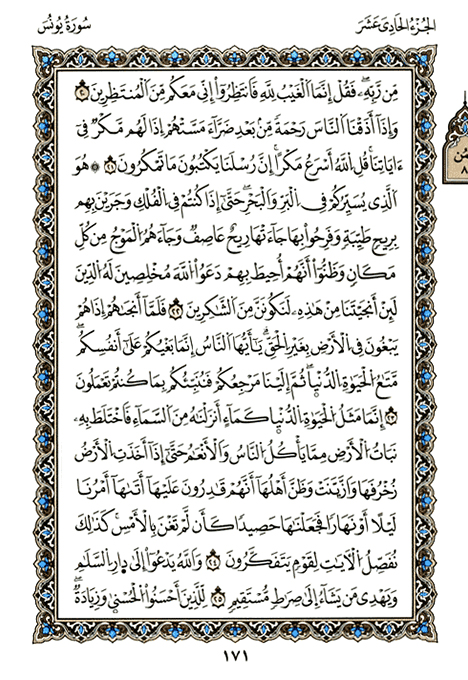 الجُزْءُ الحَادِى عَشَرَ
سُورَةُ يُونُسَ
مِّن رَّبِّهِۦ فَقُلْ إِنَّمَا ٱلْغَيْبُ لِلَّهِ فَٱنتَظِرُوٓا۟ إِنِّى مَعَكُم مِّنَ ٱلْمُنتَظِرِينَ ٢٠
وَإِذَآ أَذَقْنَا ٱلنَّاسَ رَحْمَةً مِّنۢ بَعْدِ ضَرَّآءَ مَسَّتْهُمْ إِذَا لَهُم مَّكْرٌ فِىٓ
ءَايَاتِنَا قُلِ ٱللَّهُ أَسْرَعُ مَكْرًا إِنَّ رُسُلَنَا يَكْتُبُونَ مَا تَمْكُرُونَ ٢١ ۞ هُوَ
ٱلَّذِى يُسَيِّرُكُمْ فِى ٱلْبَرِّ وَٱلْبَحْرِ حَتَّىٰٓ إِذَا كُنتُمْ فِى ٱلْفُلْكِ وَجَرَيْنَ بِهِم
بِرِيحٍ طَيِّبَةٍ وَفَرِحُوا۟ بِهَا جَآءَتْهَا رِيحٌ عَاصِفٌ وَجَآءَهُمُ ٱلْمَوْجُ مِن كُلِّ
مَكَانٍ وَظَنُّوٓا۟ أَنَّهُمْ أُحِيطَ بِهِمْ دَعَوُا۟ ٱللَّهَ مُخْلِصِينَ لَهُ ٱلدِّينَ
لَئِنْ أَنجَيْتَنَا مِنْ هَٰذِهِۦ لَنَكُونَنَّ مِنَ ٱلشَّٰكِرِينَ ٢٢ فَلَمَّآ أَنجَىٰهُمْ إِذَا هُمْ
يَبْغُونَ فِى ٱلْأَرْضِ بِغَيْرِ ٱلْحَقِّ يَٰٓأَيُّهَا ٱلنَّاسُ إِنَّمَا بَغْيُكُمْ عَلَىٰٓ أَنفُسِكُم
مَّتَٰعُ ٱلْحَيَوٰةِ ٱلدُّنْيَا ثُمَّ إِلَيْنَا مَرْجِعُكُمْ فَنُنَبِّئُكُم بِمَا كُنتُمْ تَعْمَلُونَ
٢٣ إِنَّمَا مَثَلُ ٱلْحَيَوٰةِ ٱلدُّنْيَا كَمَآءٍ أَنزَلْنَٰهُ مِنَ ٱلسَّمَآءِ فَٱخْتَلَطَ بِهِۦ
نَبَاتُ ٱلْأَرْضِ مِمَّا يَأْكُلُ ٱلنَّاسُ وَٱلْأَنْعَٰمُ حَتَّىٰٓ إِذَآ أَخَذَتِ ٱلْأَرْضُ
زُخْرُفَهَا وَٱزَّيَّنَتْ وَظَنَّ أَهْلُهَآ أَنَّهُمْ قَٰدِرُونَ عَلَيْهَآ أَتَىٰهَآ أَمْرُنَا
لَيْلًا أَوْ نَهَارًا فَجَعَلْنَٰهَا حَصِيدًا كَأَن لَّمْ تَغْنَ بِٱلْأَمْسِ كَذَٰلِكَ
نُفَصِّلُ ٱلْءَايَٰتِ لِقَوْمٍ يَتَفَكَّرُونَ ٢٤ وَٱللَّهُ يَدْعُوٓا۟ إِلَىٰ دَارِ ٱلسَّلَٰمِ
وَيَهْدِى مَن يَشَآءُ إِلَىٰ صِرَٰطٍ مُّسْتَقِيمٍ ٢٥ لِّلَّذِينَ أَحْسَنُوا۟ ٱلْحُسْنَىٰ وَزِيَادَةٌ
١٧١